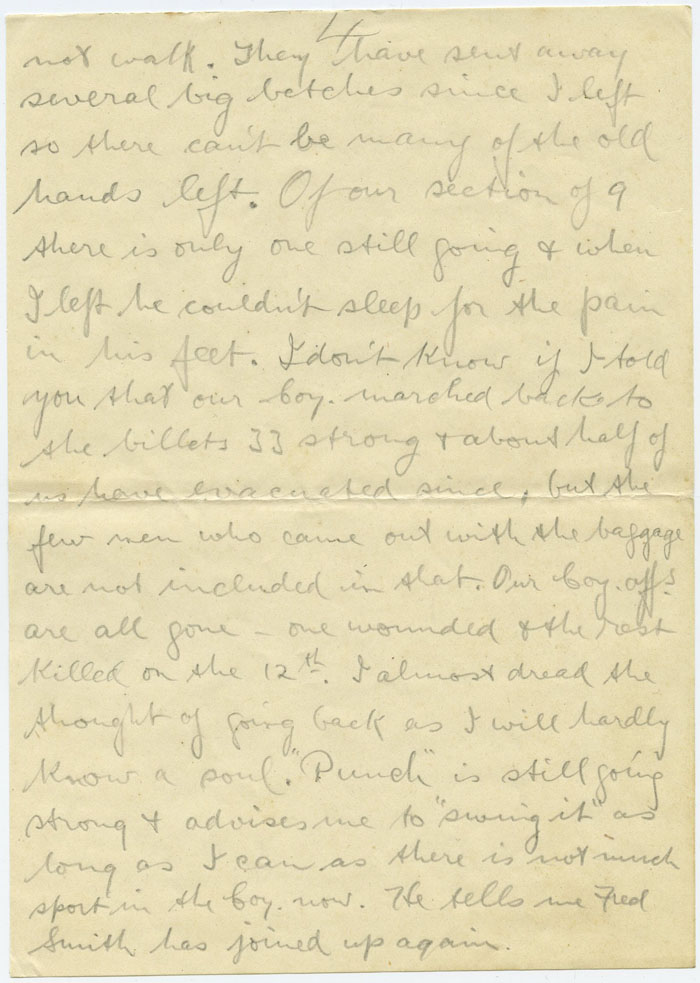 4
not walk. They have sent away
several big betches since I left
so there can't be many of the old
hands left. Of our section of 9
there is only one still going & when
I left he couldn't sleep for the pain
in his feet. I don't know if I told
you that our Coy. marched back to
the billets 33 strong & about half of
us have evacuated since, but the
few men who came out with the baggage
are not included in that. Our Coy. offs.
are all gone – one wounded & the rest
killed on the 12th. I almost dread the
thought of going back as I will hardly
know a soul. "Punch" is still going
strong & advises me to "swing it" as
long as I can as there is not much
sport in the Coy. now. He tells me Fred
Smith has joined up again.